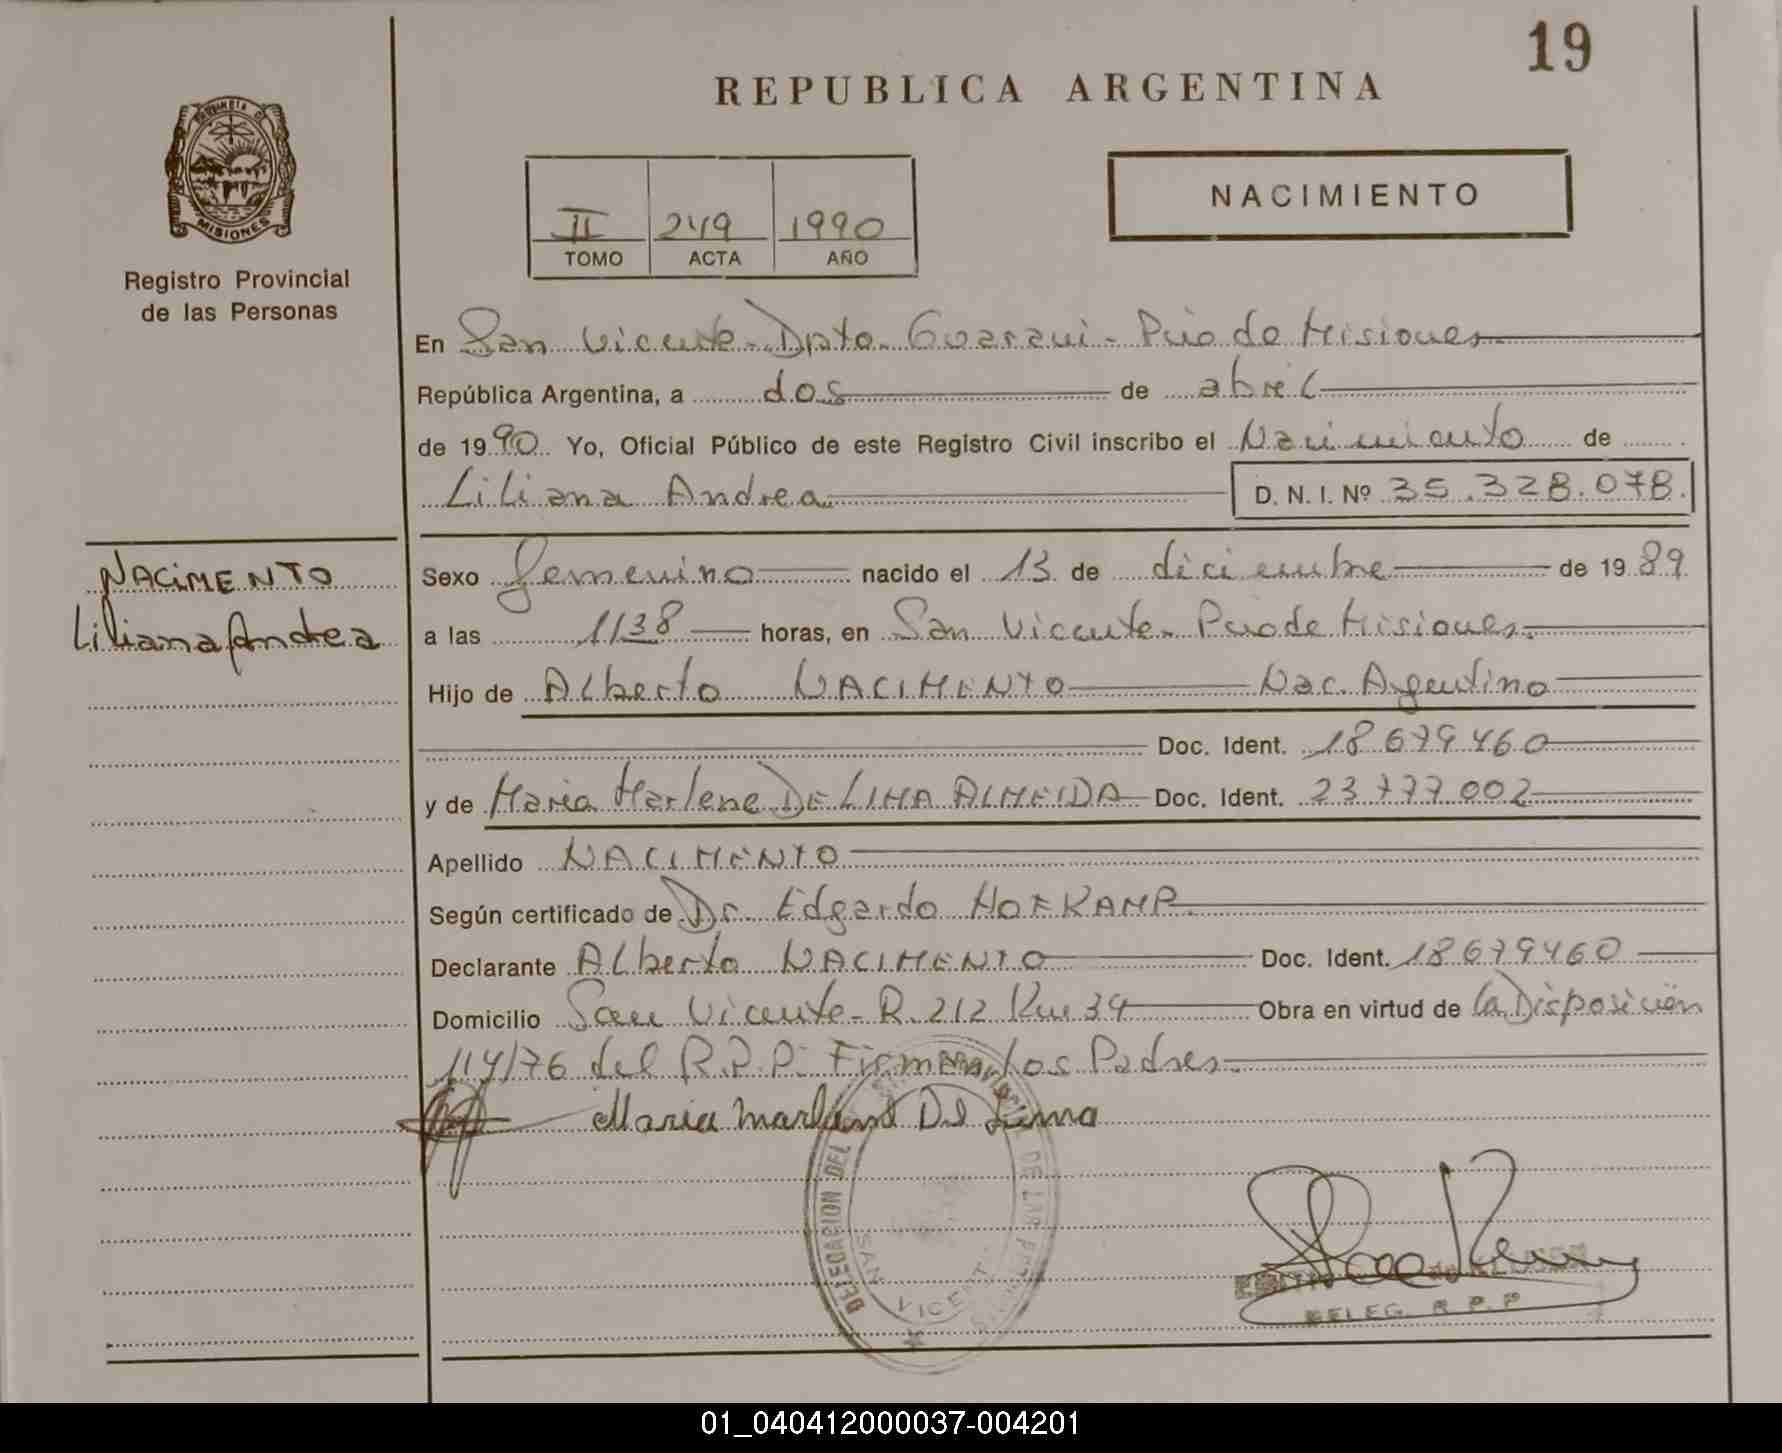 19
REPUBLICA ARGENTINA
PROVINCIA DE
MISIONES
Registro Provincial
de las Personas
II 249 1990
TOMO ACTA AÑO
NACIMIENTO
En San Vicente - Dpto. Guaraní - Pcia de Misiones
República Argentina, a dos de abril
de 1990. Yo, Oficial Público de este Registro Civil inscribo el Nacimiento de
Liliana Andrea D. N. I. Nº 35.328.078.
NACIMENTO
Liliana Andrea
Sexo femenino nacido el 13 de diciembre de 1989
a las 1138 horas, en San Vicente - Pcia de Misiones.
Hijo de Alberto NACIMENTO Nac. Argentino
Doc. Ident. 18679460
y de Maria Marlene DE LIMA ALMEIDA Doc. Ident. 23777002
Apellido NACIMENTO
Según certificado de Dr. Edgardo HOFKAMP.
Declarante Alberto NACIMENTO Doc. Ident. 18679460
Domicilio San Vicente - R. 212 Km 34 Obra en virtud de la Disposición
114/76 del R.P.P. Firman los Padres.
Maria Marlene De Lima
DELEGACION DEL DE LAS
SAN VICENTE
DELEG. R.P.P
01_040412000037-004201